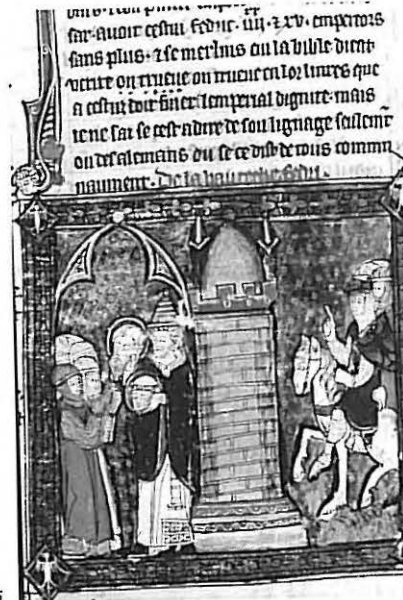 sar. auoit cestui fedric. iiij. & xv. emperors
sans plus. & se merlins ou la bible dient
uerite on trueue on trueue en lor liures que
a cestui doit finer lemperial dignite. mais
ie ne sai se cest a dire de son lignage seulemt
ou des alemans ou se ce dist de tous commu
naument. De la